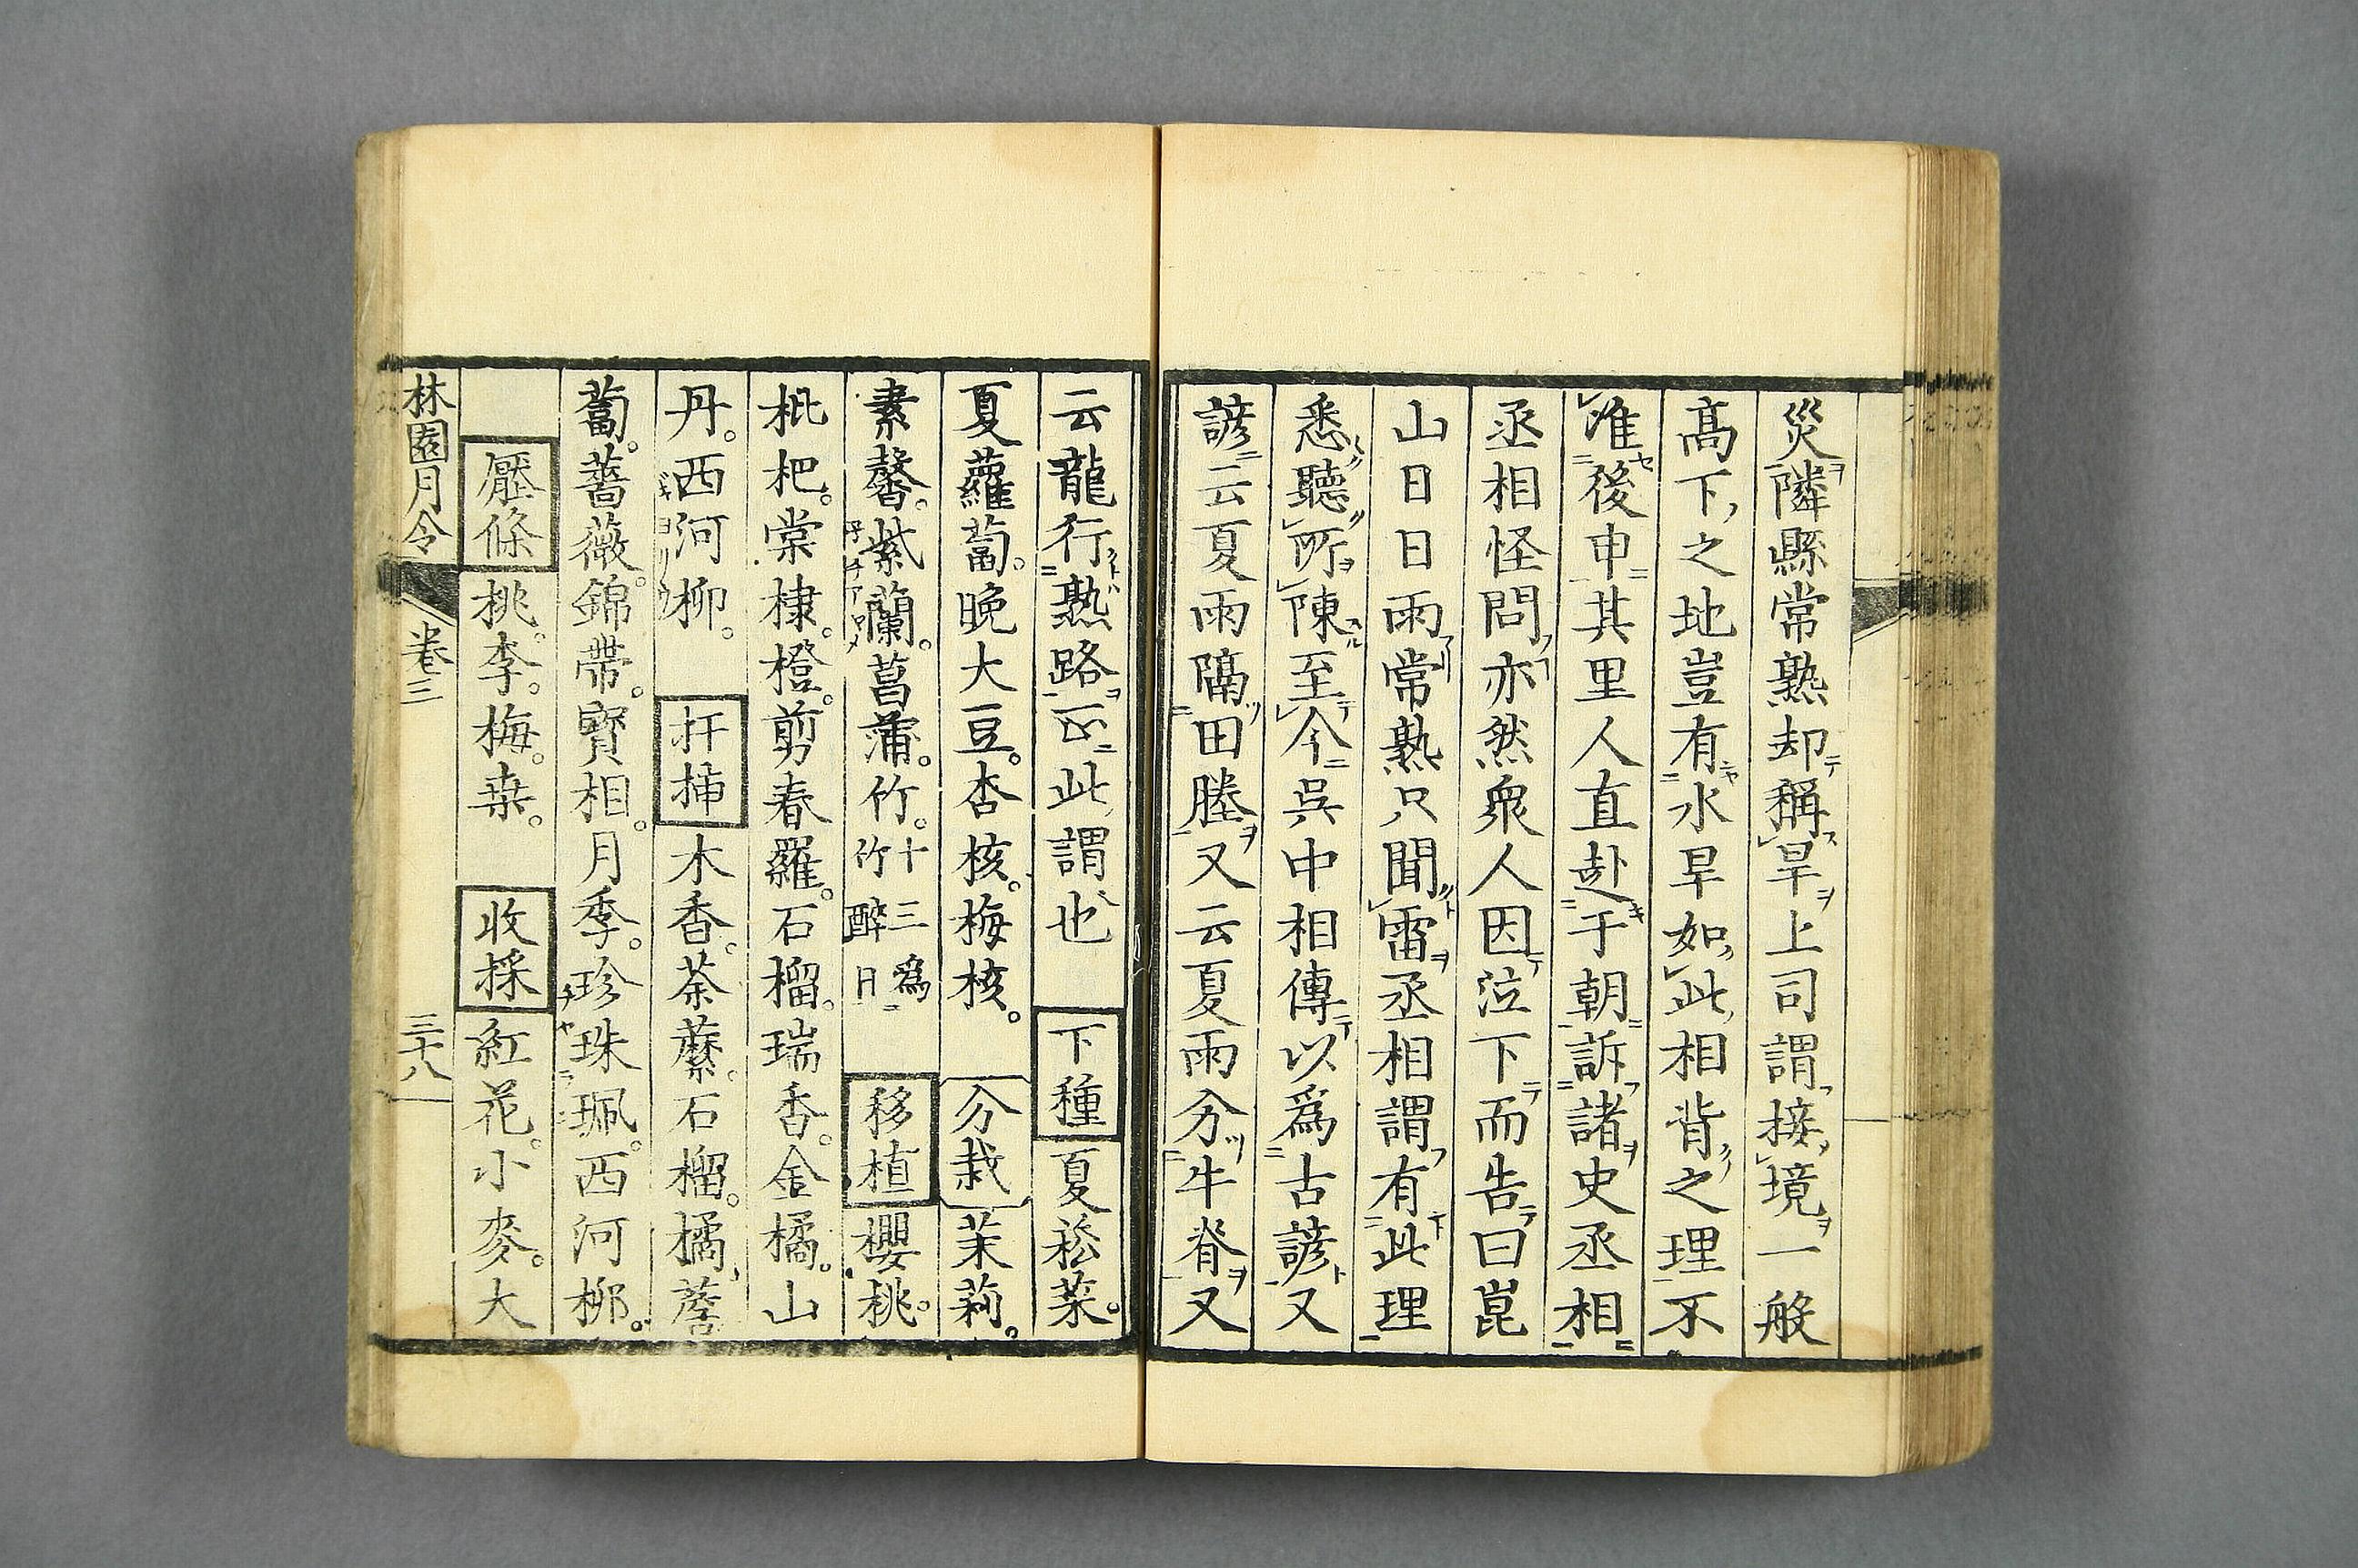 災隣縣常熟却稱旱上司謂接境一般
高下之地豈有水旱如此相背之理不
准後申其里人直赴于朝訴諸史丞相
丞相怪問亦然衆人因泣下而告曰崑
山日日雨常熟只聞雷丞相謂有此理
悉聽所陳至今吳中相傳以爲古諺又
諺云夏雨隔田塍又云夏雨分牛脊又
云龍行熟路正此謂也 下種 夏菘菜。
夏蘿蔔。晚大豆。杏核。梅核。 分栽 茉莉。
素馨。紫蘭。菖蒲。竹。十三爲竹醉日 移植 櫻桃。
枇杷。棠棣。橙。剪春羅。石榴。瑞香。金橘。山
丹。西河柳。 扦插 木香。荼蘼。石榴。橘。薝
蔔。薔薇。錦帶。寶相。月季。珍珠珮。西河柳。
壓條 桃。李。梅。桒。 收採 紅花。小麥。大
林園月令 卷三 三十八